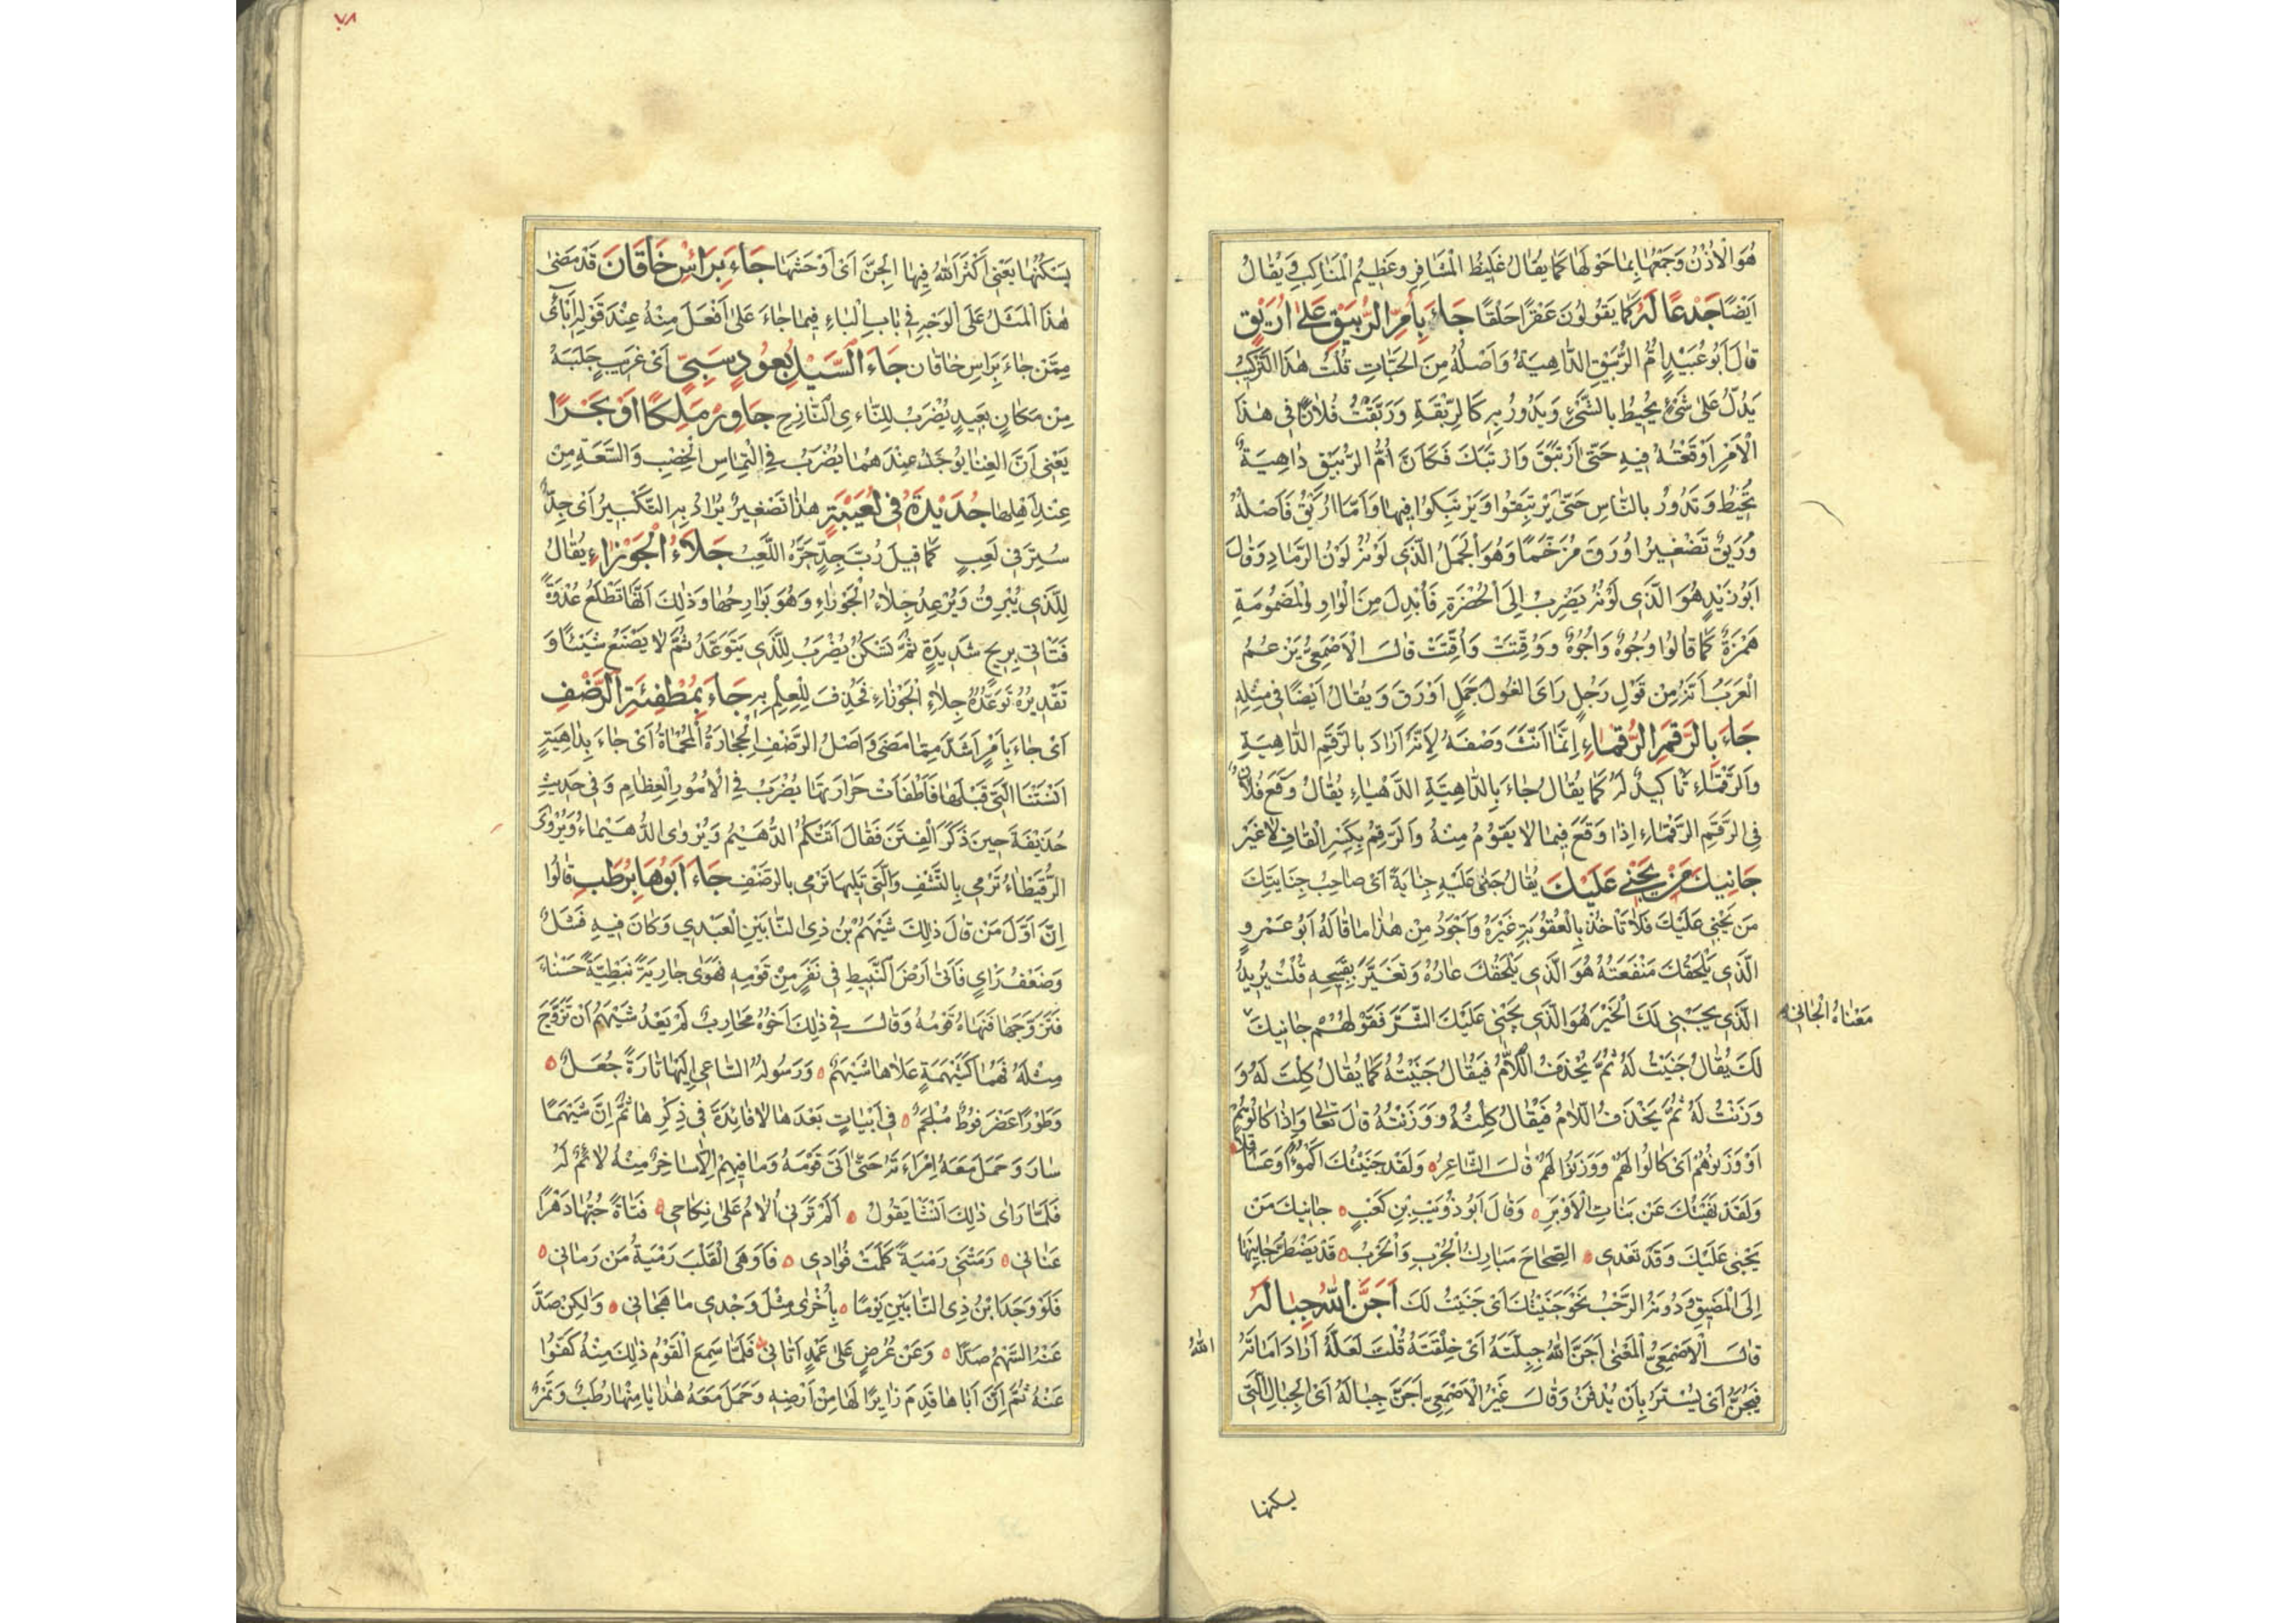 هُوَ الْأُذُنُ وَجَمْعُهَا بِمَا حَوْلَهَا كَمَا يُقَالُ غَلِيظُ الْمَشَافِرِ وَعَظِيمُ الْمَنَاكِبِ وَيُقَالُ
اَيْضًا جَدْعًا لَهُ كَمَا يَقُولُونَ عَقْرًا حَلْقًا جَاءَ بِأُمِّ الرُّبَيْقِ عَلَى اُرَيْقٍ
قَالَ اَبُو عُبَيْدٍ اُمُّ الرُّبَيْقِ الدَّاهِيَةُ وَاَصْلُهُ مِنَ الْحَيَّاتِ قُلْتُ هٰذَا التَّرْكِيبُ
يَدُلُّ عَلٰى شَيْءٍ يُحِيطُ بِالشَّيْءِ وَيَدُورُ بِهِ كَالرِّبْقَةِ وَرَبَّقْتُ فُلَانًا فِي هٰذَا
الْاَمْرِ اَوْقَعْتُهُ فِيهِ حَتّٰى اَرْتَبَقَ وَارْتَبَكَ فَكَانَ اُمُّ الرُّبَيْقِ دَاهِيَةٌ
تُحِيطُ وَتَدُورُ بِالنَّاسِ حَتّٰى يَرْتَبِقُوا وَيَرْتَبِكُوا فِيهَا وَاَمَّا اُرَيْقٌ فَاَصْلُهُ
وُرَيْقٌ تَصْغِيرُ اَوْرَقَ مُرَخَّمًا وَهُوَ الْجَمَلُ الَّذِي لَوْنُهُ لَوْنُ الرَّمَادِ وَقَالَ
اَبُو زَيْدٍ هُوَ الَّذِي لَوْنُهُ يَضْرِبُ اِلَى الْخُضْرَةِ فَاُبْدِلَ مِنَ الْوَاوِ الْمَضْمُومَةِ
هَمْزَةٌ كَمَا قَالُوا وُجُوهٌ وَاُجُوهٌ وَوُقِّتَتْ وَاُقِّتَتْ قَالَ الْاَصْمَعِيُّ يَزْعُمُ
الْعَرَبُ اَنَّهُ مِنْ قَوْلِ رَجُلٍ رَاَى الْغُولَ جَمَلٍ اَوْرَقَ وَيُقَالُ اَيْضًا فِي مِثْلِهِ
جَاءَ بِالرَّقِمِ الرَّقْمَاءِ اِنَّمَا اَنَّثَ وَصْفَهُ لِاَنَّهُ اَرَادَ بِالرَّقِمِ الدَّاهِيَةِ
وَالرَّقْمَاءِ تَاكِيدٌ لَهُ كَمَا يُقَالُ جَاءَ بِالدَّاهِيَةِ الدَّهْيَاءِ يُقَالُ وَقَعَ فُلَانٌ
فِي الرَّقِمِ الرَّقْمَاءِ اِذَا وَقَعَ فِيمَا لَا يَقُومُ مِنْهُ وَالرَّقِمُ بِكَسْرِ الْقَافِ لَا غَيْرُ
جَانِيكَ مَنْ يَجْنِي عَلَيْكَ يُقَالُ جَنٰى عَلَيْهِ جِنَايَةً اَيْ صَاحِبُ جِنَايَتِكَ
مَنْ يَجْنِي عَلَيْكَ فَلَا تَاْخُذْ بِالْعُقُوبَةِ غَيْرَهُ وَاَجْوَدُ مِنْ هٰذَا مَا قَالَهُ اَبُو عَمْرٍو
الَّذِي يَلْحَقُكَ مَنْفَعَتُهُ هُوَ الَّذِي يَلْحَقُكَ عَارُهُ وَتُعَيَّرُ بِقُبْحِهِ قُلْتُ يُرِيدُ
مَعْنَاهُ الْجَانِي
الَّذِي يَجْنِي لَكَ الْخَيْرَ هُوَ الَّذِي يَجْنِي عَلَيْكَ الشَّرَّ فَقَوْلُهُمْ جَانِيكَ
لَكَ يُقَالُ جَنَيْتُ لَهُ ثُمَّ يُحْذَفُ اللَّامُ فَيُقَالُ جَنَيْتُهُ كَمَا يُقَالُ كِلْتُ لَهُ وَ
وَزَنْتُ لَهُ ثُمَّ يُحْذَفُ اللَّامُ فَيُقَالُ كِلْتُهُ وَوَزَنْتُهُ قَالَ تَعَالٰى وَاِذَا كَالُوهُمْ
اَوْ وَزَنُوهُمْ اَيْ كَالُوا لَهُمْ وَوَزَنُوا لَهُمْ قَالَ الشَّاعِرُ وَلَقَدْ جَنَيْتُكَ اَكْمُؤًا وَعَسَاقِلًا
وَلَقَدْ نَهَيْتُكَ عَنْ بَنَاتِ الْاَوْبَرِ وَقَالَ اَبُو ذُؤَيْبِ بْنِ كَعْبٍ جَانِيكَ مَنْ
يَجْنِي عَلَيْكَ وَقَدْ تُعْدِي الصِّحَاحَ مَبَارِكُ الْجُرْبِ وَالْحَرْبُ قَدْ يَضْطَرُّ جَانِيهَا
اِلَى الْمَضِيقِ وَدُونَهُ الرَّحْبُ نَحْوُ جَنَيْتُكَ اَيْ جَنَيْتُ لَكَ اَجَنَّ اللّٰهُ جِبَالَهُ
قَالَ الْاَصْمَعِيُّ الْمَعْنٰى اَجَنَّ اللّٰهُ جِبِلَّتَهُ اَيْ خِلْقَتَهُ قُلْتُ لَعَلَّهُ اَرَادَ اَمَاتَهُ
اللّٰهُ
فَيُجَنُّ اَيْ يُسْتَرُ بِاَنْ يُدْفَنُ وَقَالَ غَيْرُ الْاَصْمَعِيِّ اَجَنَّ جِبَالَهُ اَيِ الْجِبَالَ الَّتِي
يسكنها
٧٨
يَسْكُنُهَا يَعْنِي اَكْثَرَ اللّٰهُ فِيهَا الْجِنَّ اَيْ اَوْحَشَهَا جَاءَ بِرَاْسِ خَاقَانَ قَدْ مَضٰى
هٰذَا الْمَثَلُ عَلَى الْوَجْهِ فِي بَابِ الْبَاءِ فِيمَا جَاءَ عَلٰى اَفْعَلَ مِنْهُ عِنْدَ قَوْلِهِ اَبْاَى
مِمَّنْ جَاءَ بِرَاْسِ خَاقَانَ جَاءَ السَّيْلُ بِعُودٍ سَبِيٍّ اَيْ غَرِيبٍ جَلَبَهُ
مِنْ مَكَانٍ بَعِيدٍ يُضْرَبُ لِلنَّاءِي النَّازِحِ جَاوِرْ مَلِكًا اَوْ بَحْرًا
يَعْنِي اَنَّ الْغِنَا يُوجَدُ عِنْدَهُمَا يُضْرَبُ فِي الْتِمَاسِ الْخِصْبِ وَالسَّعَةِ مِنْ
عِنْدِ اَهْلِهَا جُدَيْدَةٌ فِي لُعَيْبَةٍ هٰذَا تَصْغِيرٌ يُرَادُ بِهِ التَّكْبِيرُ اَيْ جِدٌّ
سُتِرَ فِي لَعِبٍ كَمَا قِيلَ رُبَّ جِدٍّ جَرَّهُ اللَّعِبُ جِلَاءُ الْجَوْزَاءِ يُقَالُ
لِلَّذِي يُبْرِقُ وَيُرْعِدُ جِلَاءُ الْجَوْزَاءِ وَهُوَ بَوَارِحُهَا وَذٰلِكَ اَنَّهَا تَطْلُعُ غُدْوَةً
فَتَاْتِي بِرِيحٍ شَدِيدَةٍ ثُمَّ تَسْكُنُ يُضْرَبُ لِلَّذِي يَتَوَعَّدُ ثُمَّ لَا يَصْنَعُ شَيْئًا وَ
تَقْدِيرُهُ تَوَعُّدُهُ جِلَاءِ الْجَوْزَاءِ فَحُذِفَ لِلْعِلْمِ بِهِ جَاءَ بِمُطْفِئَةِ الرَّضْفِ
اَيْ جَاءَ بِاَمْرٍ اَشَدَّ مِمَّا مَضٰى وَاَصْلُ الرَّضْفِ الْحِجَارَةُ الْمُحْمَاةُ اَيْ جَاءَ بِدَاهِيَةٍ
اَنْسَتْنَا الَّتِي قَبْلَهَا فَاَطْفَاَتْ حَرَارَتَهَا يُضْرَبُ فِي الْاُمُورِ الْعِظَامِ وَفِي حَدِيثِ
حُذَيْفَةَ حِينَ ذَكَرَ الْفِتَنَ فَقَالَ اَتَتْكُمُ الدُّهَيْمُ وَيُرْوَى الدُّهَيْمَاءُ وَيُرْوٰى
الرُّقَيْطَاءُ تَرْمِي بِالنَّشَفِ وَالَّتِي تَلِيهَا تَرْمِي بِالرَّضْفِ جَاءَ اَبُوهَا بِرُطَبٍ قَالُوا
اِنَّ اَوَّلَ مَنْ قَالَ ذٰلِكَ شَيْهَمُ بْنُ ذِي النَّابَيْنِ الْعَبْدِي وَكَانَ فِيهِ فَشَلٌ
وَضَعْفُ رَايٍ فَاَتٰى اَرْضَ النَّبِيطِ فِي نَفَرٍ مِنْ قَوْمِهِ فَهَوٰى جَارِيَةً نَبَطِيَّةً حَسْنَاءَ
فَتَزَوَّجَهَا فَنَهَاهُ قَوْمُهُ وَقَالَ فِي ذٰلِكَ اَخُوهُ مُحَارِبٌ لَمْ يَعْدُ شَيْهَمُ اَنْ تَزَوَّجَ
مِثْلَهُ فَهُمَا كَشَيْهَمَةٍ عَلَاهَا شَيْهَمٌ وَرَسُولُهُ السَّاعِي اِلَيْهَا تَارَةً جُعَلٌ
وَطَوْرًا عَضْرَفُوطٌ مُلْجَمٌ فِي اَبْيَاتٍ بَعْدَهَا لَا فَائِدَةَ فِي ذِكْرِهَا ثُمَّ اِنَّ شَيْهَمًا
سَارَ وَحَمَلَ مَعَهُ اِمْرَاَتَهُ حَتّٰى اَتٰى قَوْمَهُ وَمَا فِيهِمْ اِلَّا سَاخِرٌ مِنْهُ لَائِمٌ لَهُ
فَلَمَّا رَاٰى ذٰلِكَ اَنْشَا يَقُولُ اَلَمْ تَرَنِي اُلَامُ عَلٰى نِكَاحِي فَتَاةً حُبُّهَا دَهْرًا
عَنَانِي رَمَتْنِي رَمْيَةً كَلَمَتْ فُؤَادِي فَاَوْهَى الْقَلْبَ رَمْيَةُ مَنْ رَمَانِي
فَلَوْ وَجَدَ ابْنُ ذِي النَّابَيْنِ يَوْمًا بِاُخْرٰى مِثْلَ وَجْدِي مَا هَجَانِي وَلٰكِنْ صَدَّ
عَنْهُ السَّهْمُ صَدًّا وَعَنْ عُرُضٍ عَلٰى عَمْدٍ اَتَانِي فَلَمَّا سَمِعَ الْقَوْمُ ذٰلِكَ مِنْهُ كَفُّوا
عَنْهُ ثُمَّ اِنَّ اَبَاهَا قَدِمَ زَايِرًا لَهَا مِنْ اَرْضِهِ وَحَمَلَ مَعَهُ هَدَايَا مِنْهَا رُطَبٌ وَتَمْرٌ